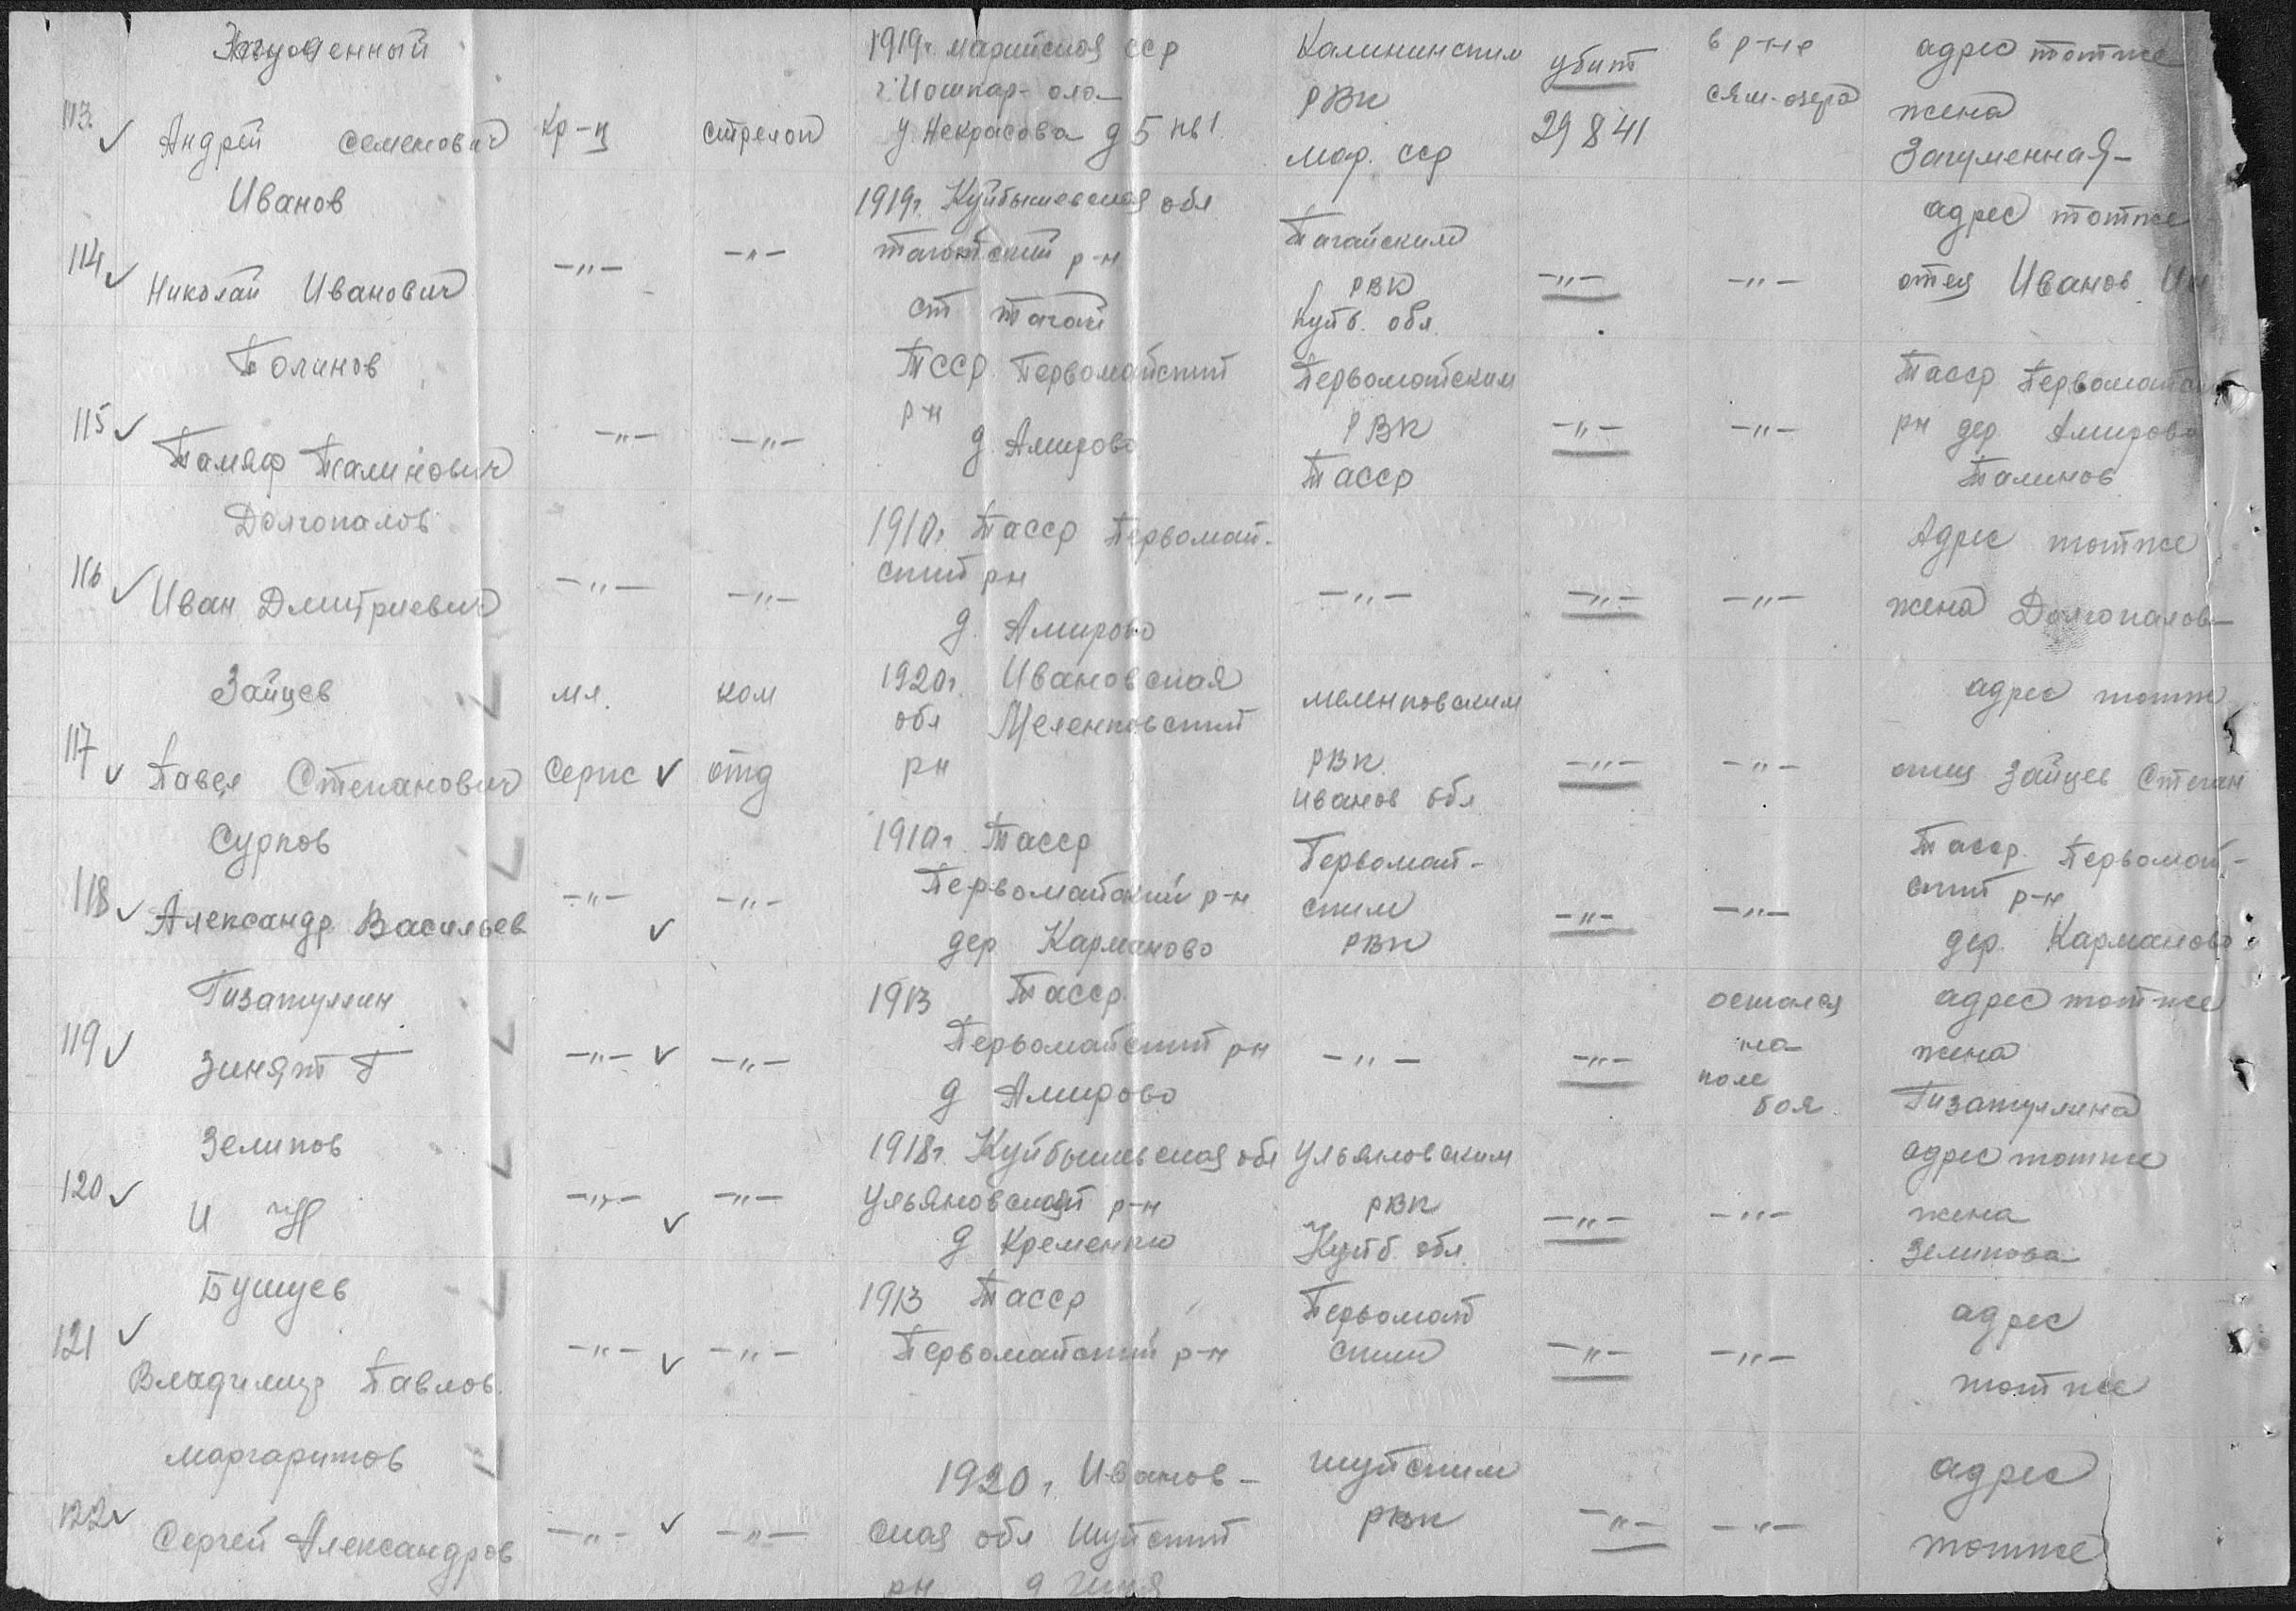 Загуменный
113. Андрей Семенович
кр-ц
стрелок
1919г. Марийская сср
г. Йошкар-ола
у. Некрасова д 5 кв 1.
Калининским
РВК
Мар. сср
убит
29 8 41
в р-не
сям-озера
адрес тотже
жена
Загуменная
Иванов
114 Николай Иванович
-"-
-"-
1919г. Куйбышевская обл
тагайский р-н
ст тагай
Тагайским
РВК
Куйб. обл.
-"-
-"-
адрес тотже
отец Иванов
115
-"-
-"-
ТССР Первомайский
р-н
д. Амирово
Первомайским
РВК
Тасср
-"-
-"-
Тасср Первомайский
рн дер. Амирово
Долгопалов
116 Иван Дмитриевич
-"-
-"-
1910г. Тасср Первомай-
ский рн
д. Амирово
-"-
-"-
-"-
Адрес тотже
жена Долгопалова
Зайцев
117 Павел Степанович
мл.
сержс
ком
отд
1920г. Ивановская
обл Меленковский
рн
меленковским
РВК
Иванов обл
-"-
-"-
адрес тотж
отец Зайцев Степан
Сурков
118 Александр Васильев
-"-
-"-
1910г. Тасср
Первомайский р-н
дер. Карманово
Первомай-
ским
РВК
-"-
-"-
Тасср. Первомай-
ский р-н
дер. Карманово
Гизатуллин
119 Зинят Г
-"-
-"-
1913 Тасср.
Первомайский р-н
д Амирово
-"-
-"-
остался
на
поле
боя.
адрес тотже
жена
Гизатуллина
Зеликов
120 И
-"-
-"-
1918г. Куйбышевская обл
Ульяновский р-н
д Кременки
Ульяновским
РВК
Куйб. обл.
-"-
-"-
адрес тотже
жена
Зеликова
Бушуев
121 Владимир Павлов.
-"-
-"-
1913 Тасср
Первомайский р-н
Первомай
ским
-"-
-"-
адрес
тотже
Маргаритов
122 Сергей Александров
-"-
-"-
1920г. Иванов-
ская обл Шуйский
рн д
шуйским
РВК
-"-
-"-
адрес
тотже